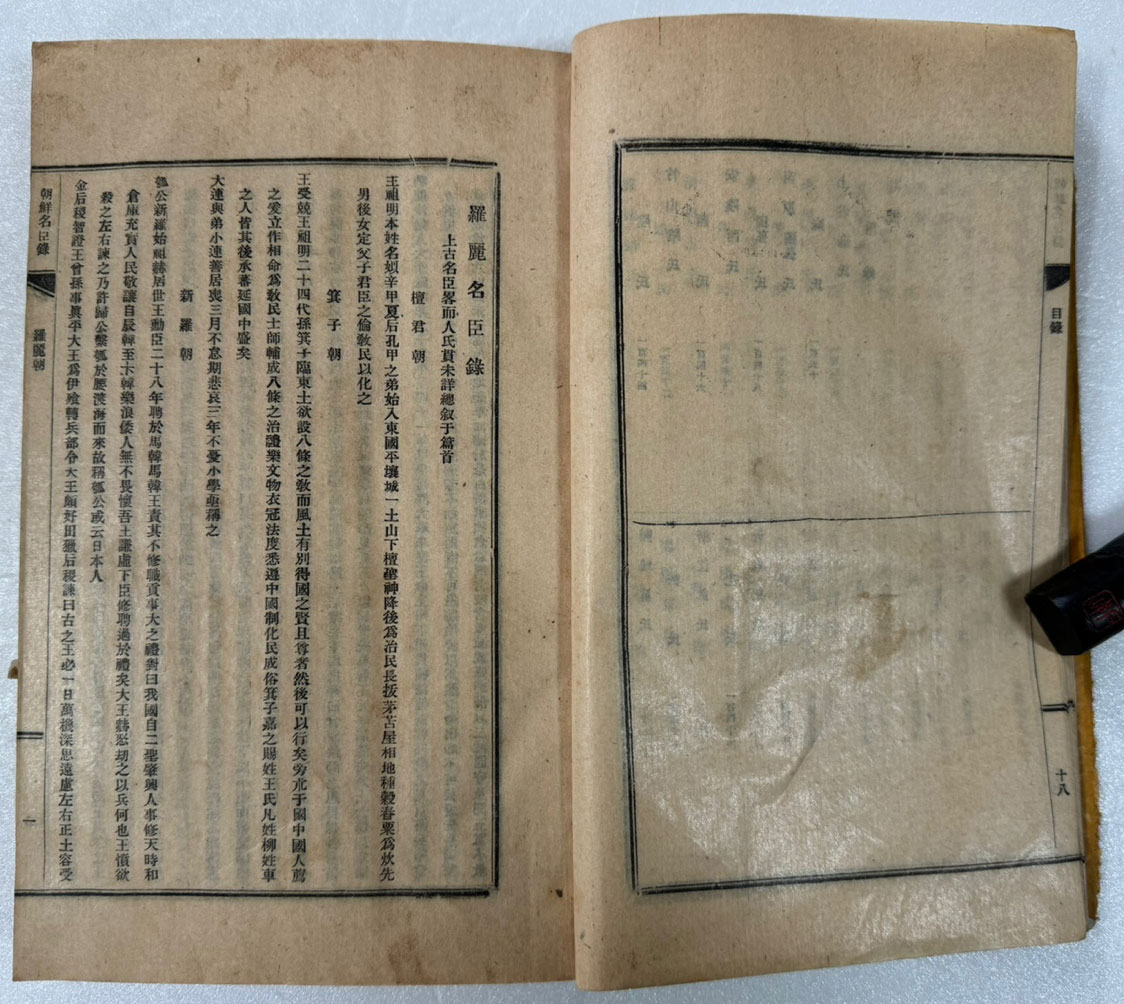 目錄
十八
羅麗名臣錄
上古名臣畧而人氏貫未詳總叙于篇首
檀君朝
王祖明本姓名姒辛甲夏后孔甲之弟始入東國平壤城一土山下檀聖神降後爲治民長扳茅苫屋相地種穀舂粟爲炊先
男後女定父子君臣之倫敎民以化之
箕子朝
王受兢王祖明二十四代孫箕子臨東土欲設八條之敎而風土有別得國之賢且尊者然後可以行矣旁尣于國中國人薦
之爰立作相命爲敎民士師輔成八條之治禮樂文物衣冠法度悉遵中國制化民成俗箕子嘉之賜姓王氏凡姓柳姓車
之人皆其後承蕃延國中盛矣
大連與弟小連善居喪三月不怠期悲哀三年不憂小學亟稱之
新羅朝
瓠公新羅始祖赫居世王勳臣二十八年聘於馬韓馬韓王責其不修職貢事大之禮對曰我國自二聖肇興人事修天時和
倉庫充實人民敬讓自辰韓至卞韓樂浪倭人無不畏懷吾王謙虛下臣修聘過於禮矣大王赫怒刧之以兵何也王憤欲
殺之左右諫之乃許歸公繫瓠於腰渡海而來故稱瓠公或云日本人
金后稷智證王曾孫事眞平大王爲伊飡轉兵部令大王頗好田獵后稷諫曰古之王必一日萬機深思遠慮左右正士容受
朝鮮名臣錄
羅麗朝
一